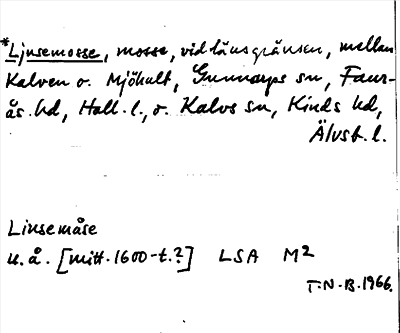 *Ljusemosse, mosse, vid länsgränsen, mellan
Kalven o. Mjöhult, Gunnarps sn, Faur-
ås hd, Hall. l., o. Kalvs sn, Kinds hd,
Älvsb. l.
Liusemåse
u.å. [mitt. 1600-t.?] LSA M2
T.N-B. 1966.